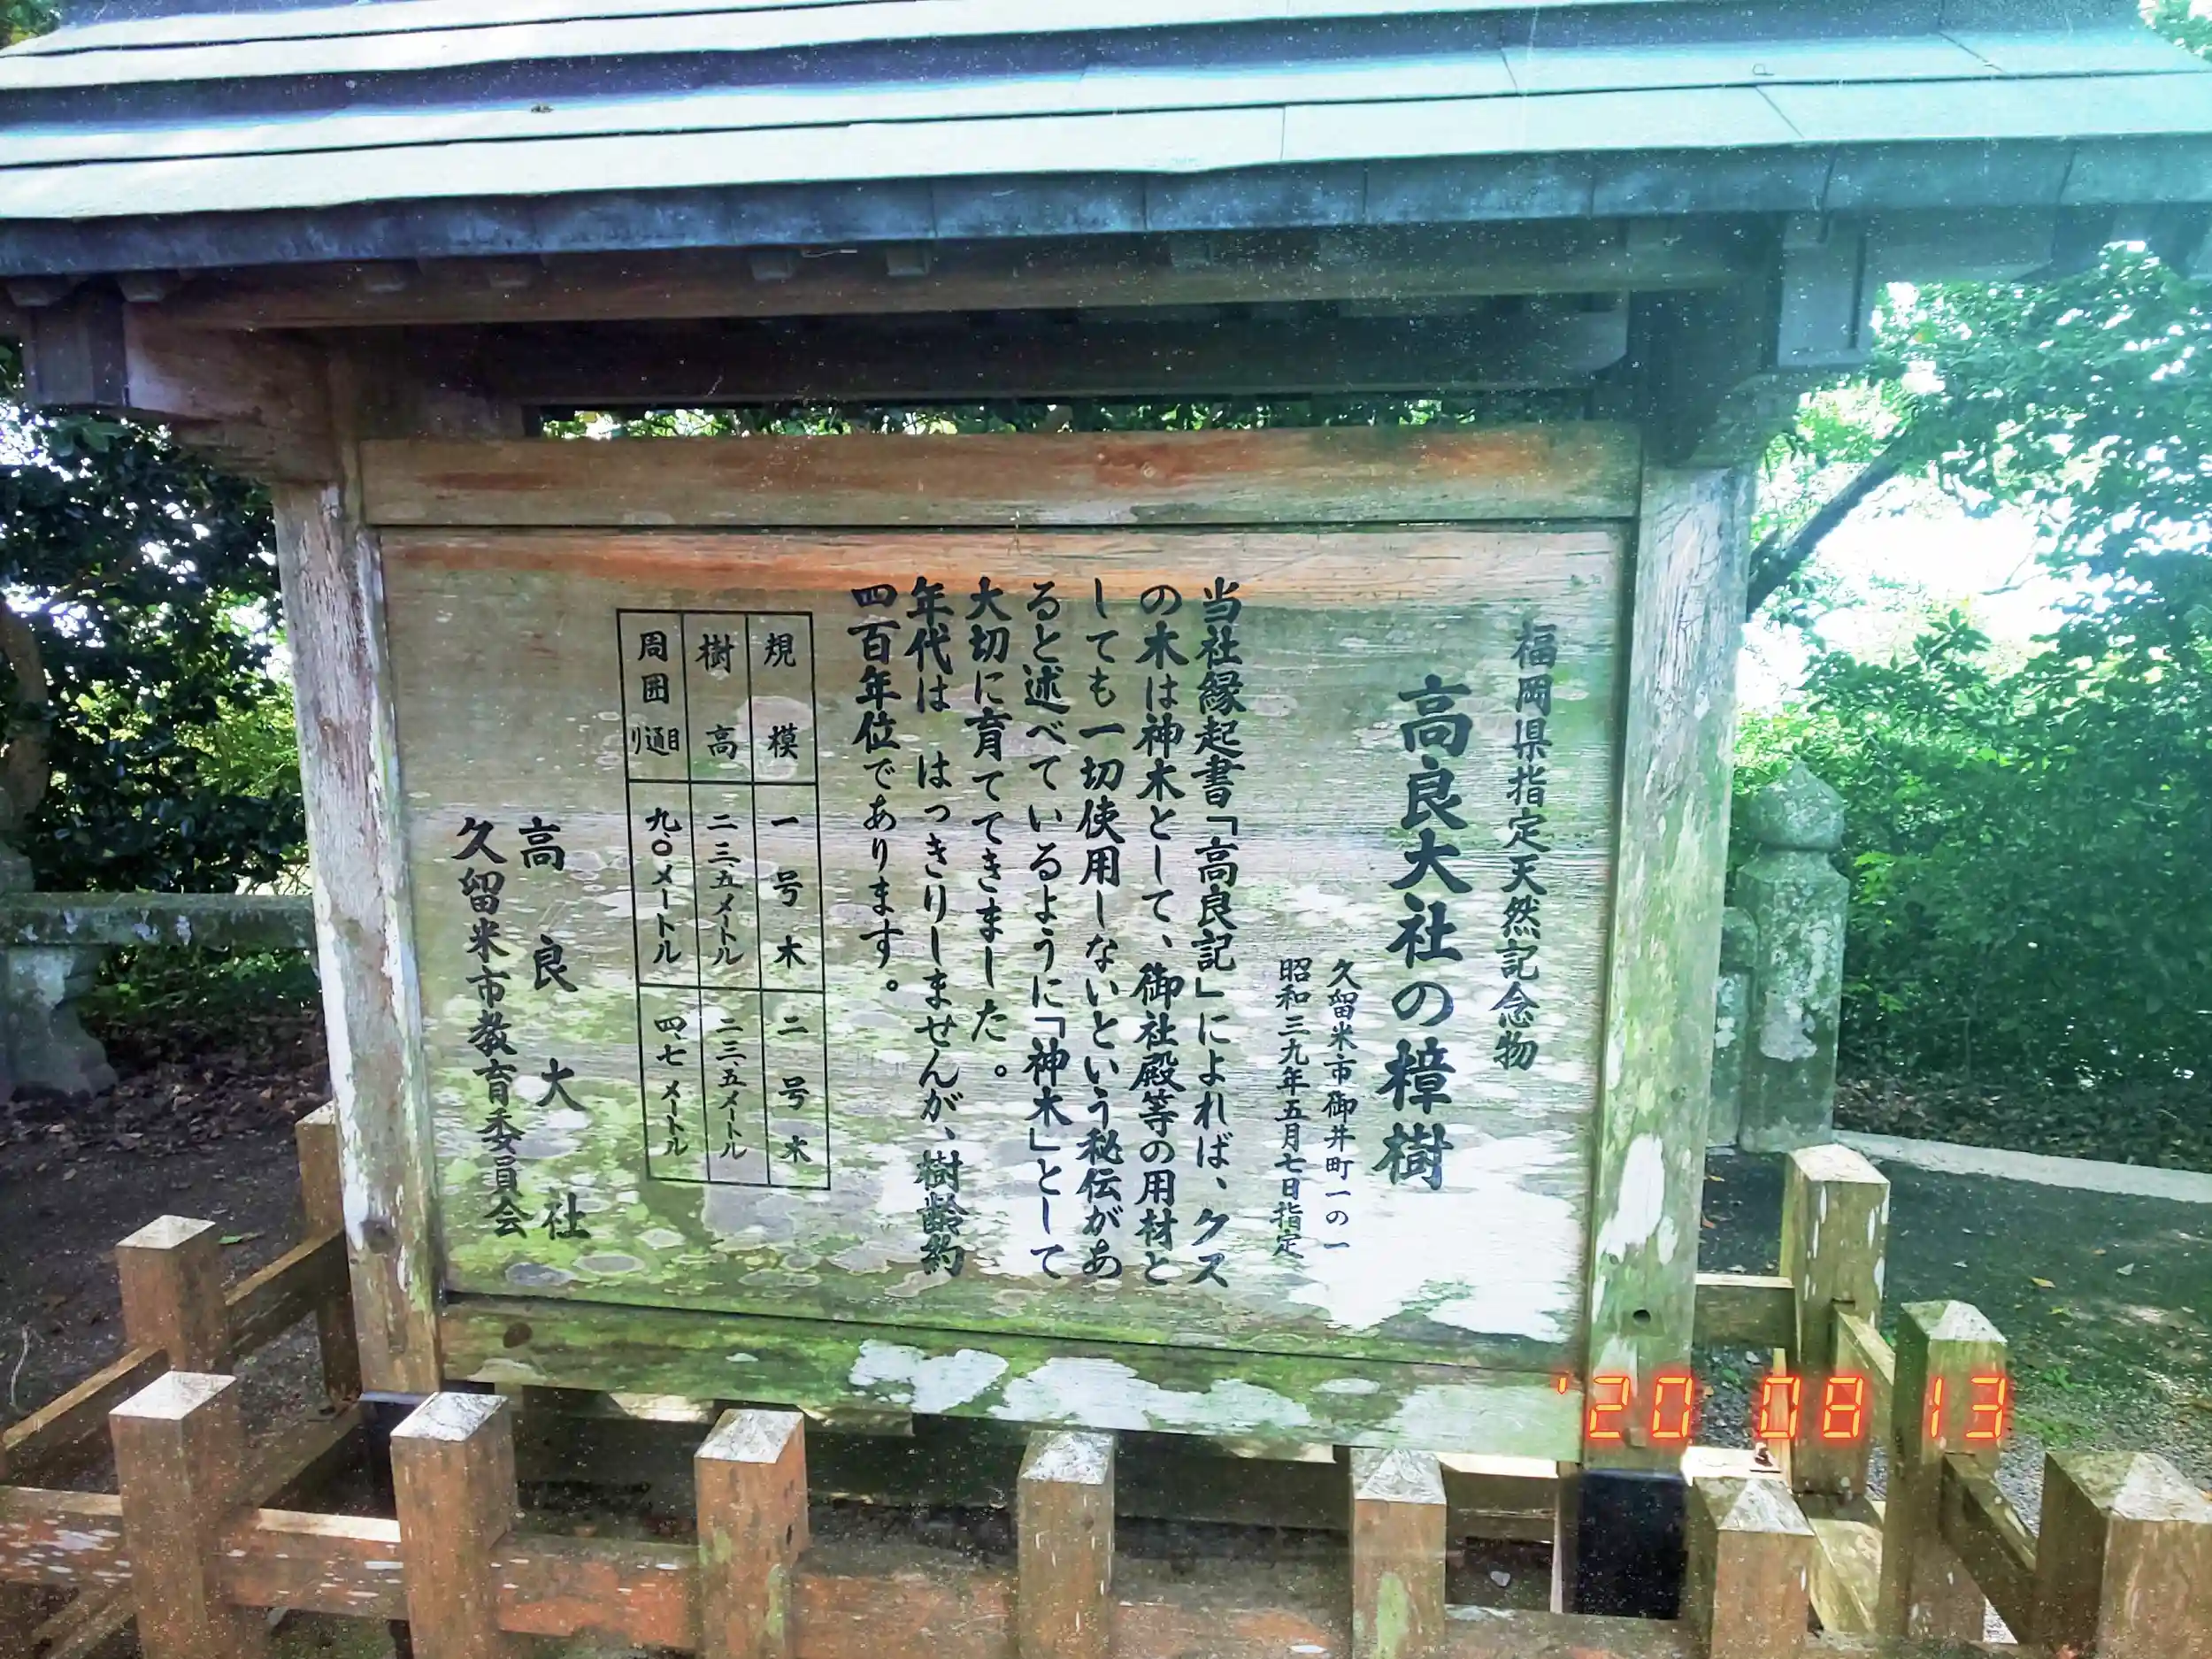 福岡県指定天然記念物
高良大社の樟樹
久留米市御井町一の一
昭和三九年五月七日指定
当社縁起書「高良記」によれば、クス
の木は神木として、御社殿等の用材と
しても一切使用しないという秘伝があ
ると述べているように「神木」として
大切に育ててきました。
年代は はっきりしませんが、樹齢約
四百年位であります。
規模 一号木 二号木
樹高 二三.五メートル 二三.五メートル
周囲 目通り 九.〇メートル 四.七メートル
高良大社
久留米市教育委員会
'20 08 13